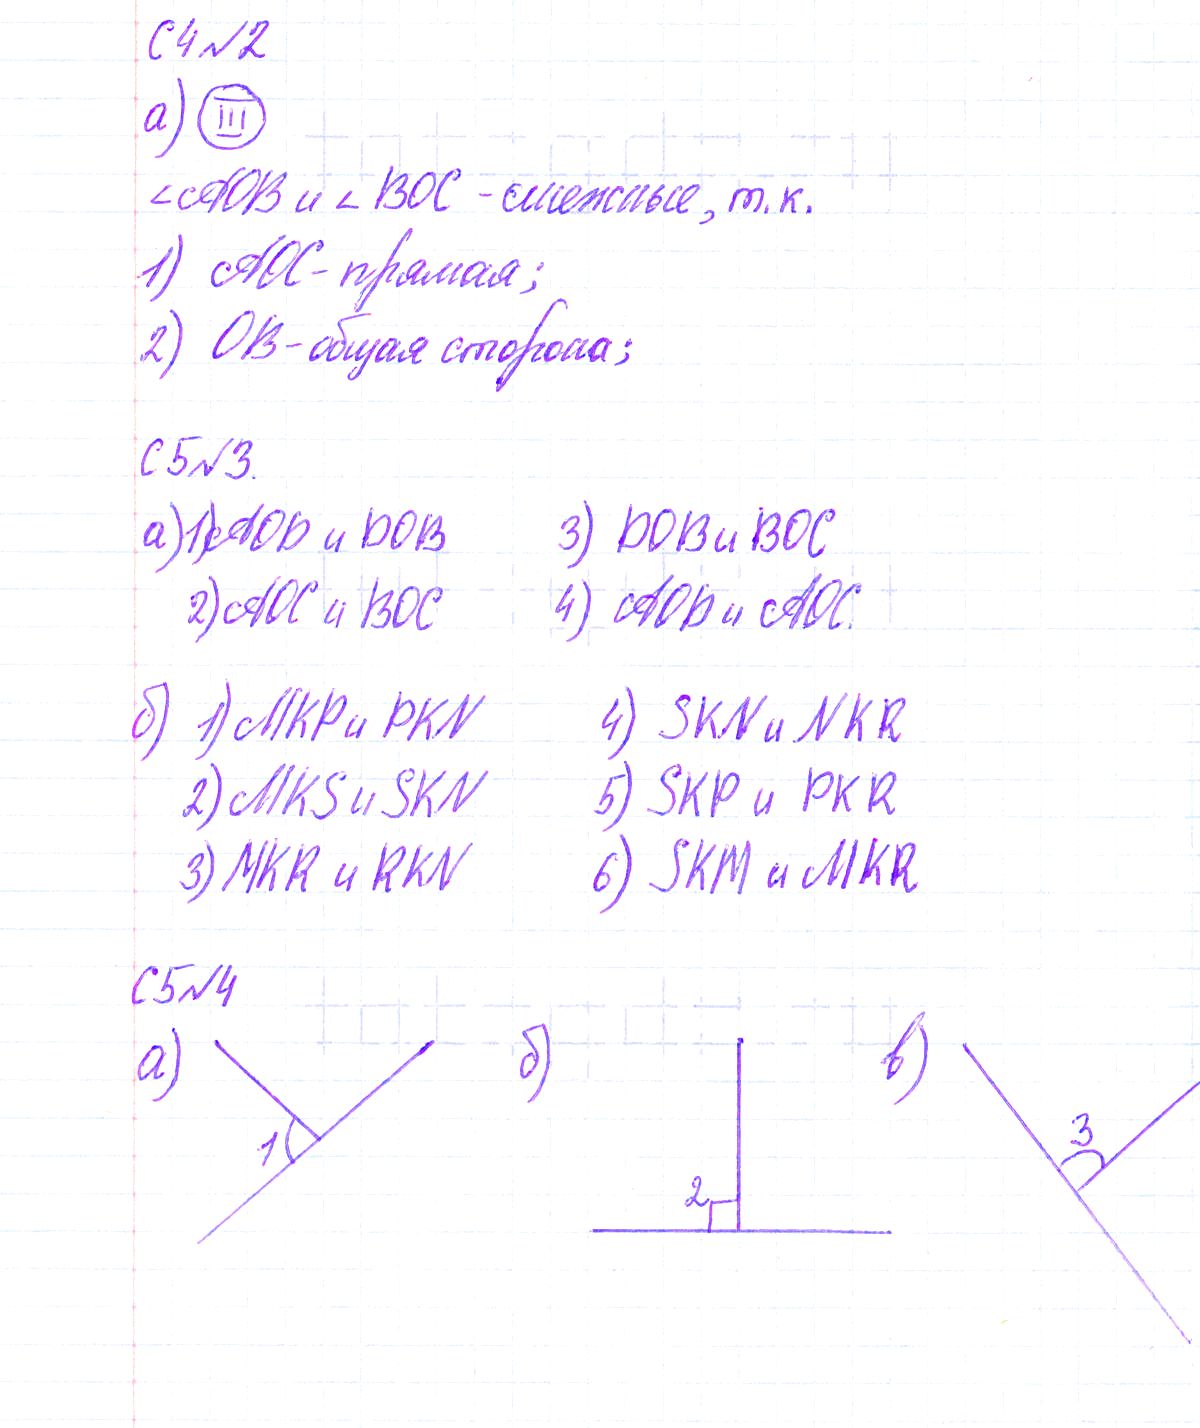 С4№2
а) III
∠AOB и ∠BOC - смежные, т.к.
1) AOC - прямая;
2) OB - общая сторона;
С5№3.
а) 1) AOD и DOB 3) DOB и BOC
2) AOC и BOC 4) AOD и AOC.
б) 1) MKP и PKN 4) SKN и NKR
2) MKS и SKN 5) SKP и PKR
3) MKR и RKN 6) SKM и MKR
С5№4
а) б) в)
1 2 3